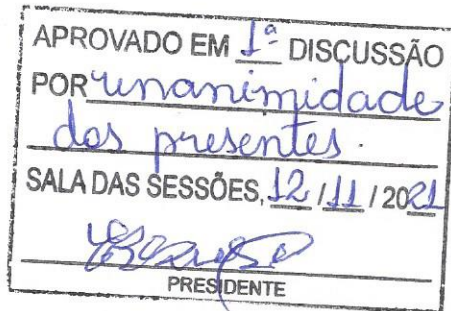 APROVADO EM 1ª DISCUSSÃO
POR unanimidade
dos presentes.
SALA DAS SESSÕES, 12 / 11 / 2021
PRESIDENTE